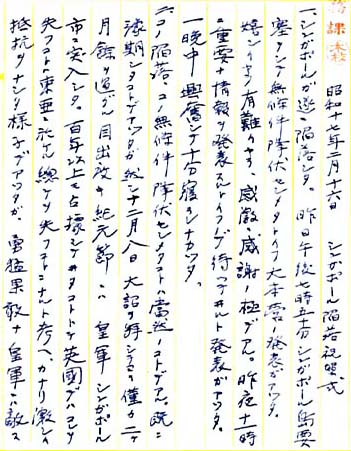 昭和十七年二月十六日　シンガポール陥落祝賀式
一、シンガポールガ遂ニ陥落シタ。昨日午後七時五十分シンガポール島要
塞ヲシテ無條件降伏センメタトイフ大本営ノ発表ガアッタ。
嬉シイヤラ有難イヤラ、感激、感謝ノ極デアル。昨夜十一時
ニ重要ナ情報ヲ発表スルトイフノデ待ツテヰルト発表ガアッタ。
一晩中興奮シテ十分寝ラレナカツタ。
二、コノ陥落、コノ無條件降伏センメタコトハ當然ノコトデアル。既ニ
豫期シタコトデアツタガ然シ十二月八日大詔ヲ拝シテカラ僅カ二ヶ
月餘ヲ過ギル目出改キ紀元節ニハ皇軍シンガポール
市ニ突入シタ。百年以上モ占據シテヰタコトトテ英國デハコレヲ
失フコトハ東亜ニ於ル総テヲ失フコトニナルト考ヘ、カナリ激シイ
抵抗ヲナシタ様子デアツタガ、勇猛果敢ナ皇軍ニハ敵ス